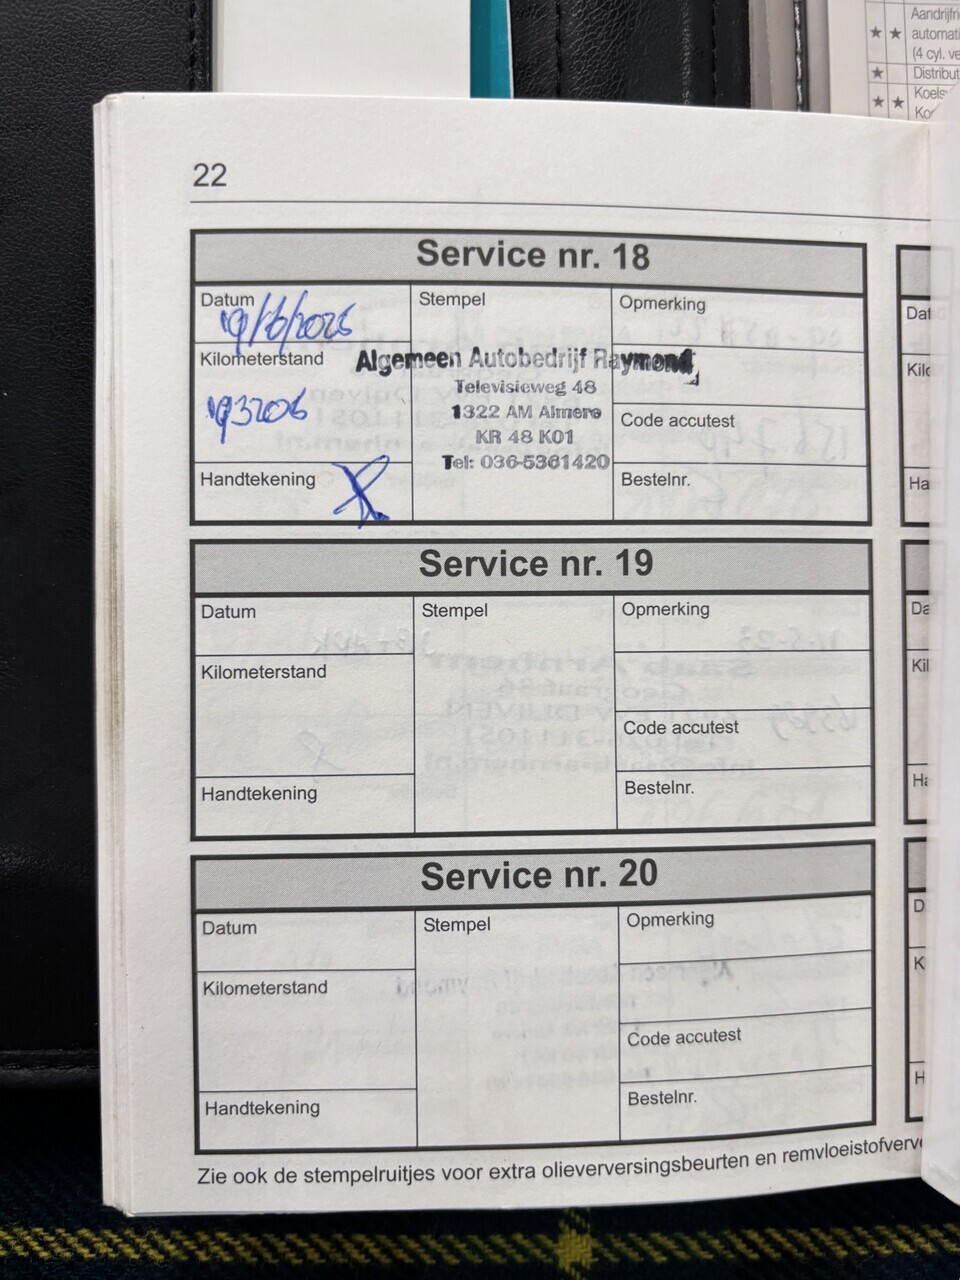 Aandrijfri
automati
(4 cyl. ve
Distribut
Koels
Ko
22
Service nr. 18
Datum
19/6/2026
Stempel
Opmerking
Kilometerstand
193206
Algemeen Autobedrijf Raymond
Televisieweg 48
1322 AM Almere
KR 48 K01
Tel: 036-5361420
Code accutest
Handtekening
Bestelnr.
Dat
Kilo
Ha
Service nr. 19
Datum
Stempel
Opmerking
Kilometerstand
Code accutest
Handtekening
Bestelnr.
Da
Kil
Ha
Service nr. 20
Datum
Stempel
Opmerking
Kilometerstand
Code accutest
Handtekening
Bestelnr.
D
K
H
Zie ook de stempelruitjes voor extra olieverversingsbeurten en remvloeistofverv